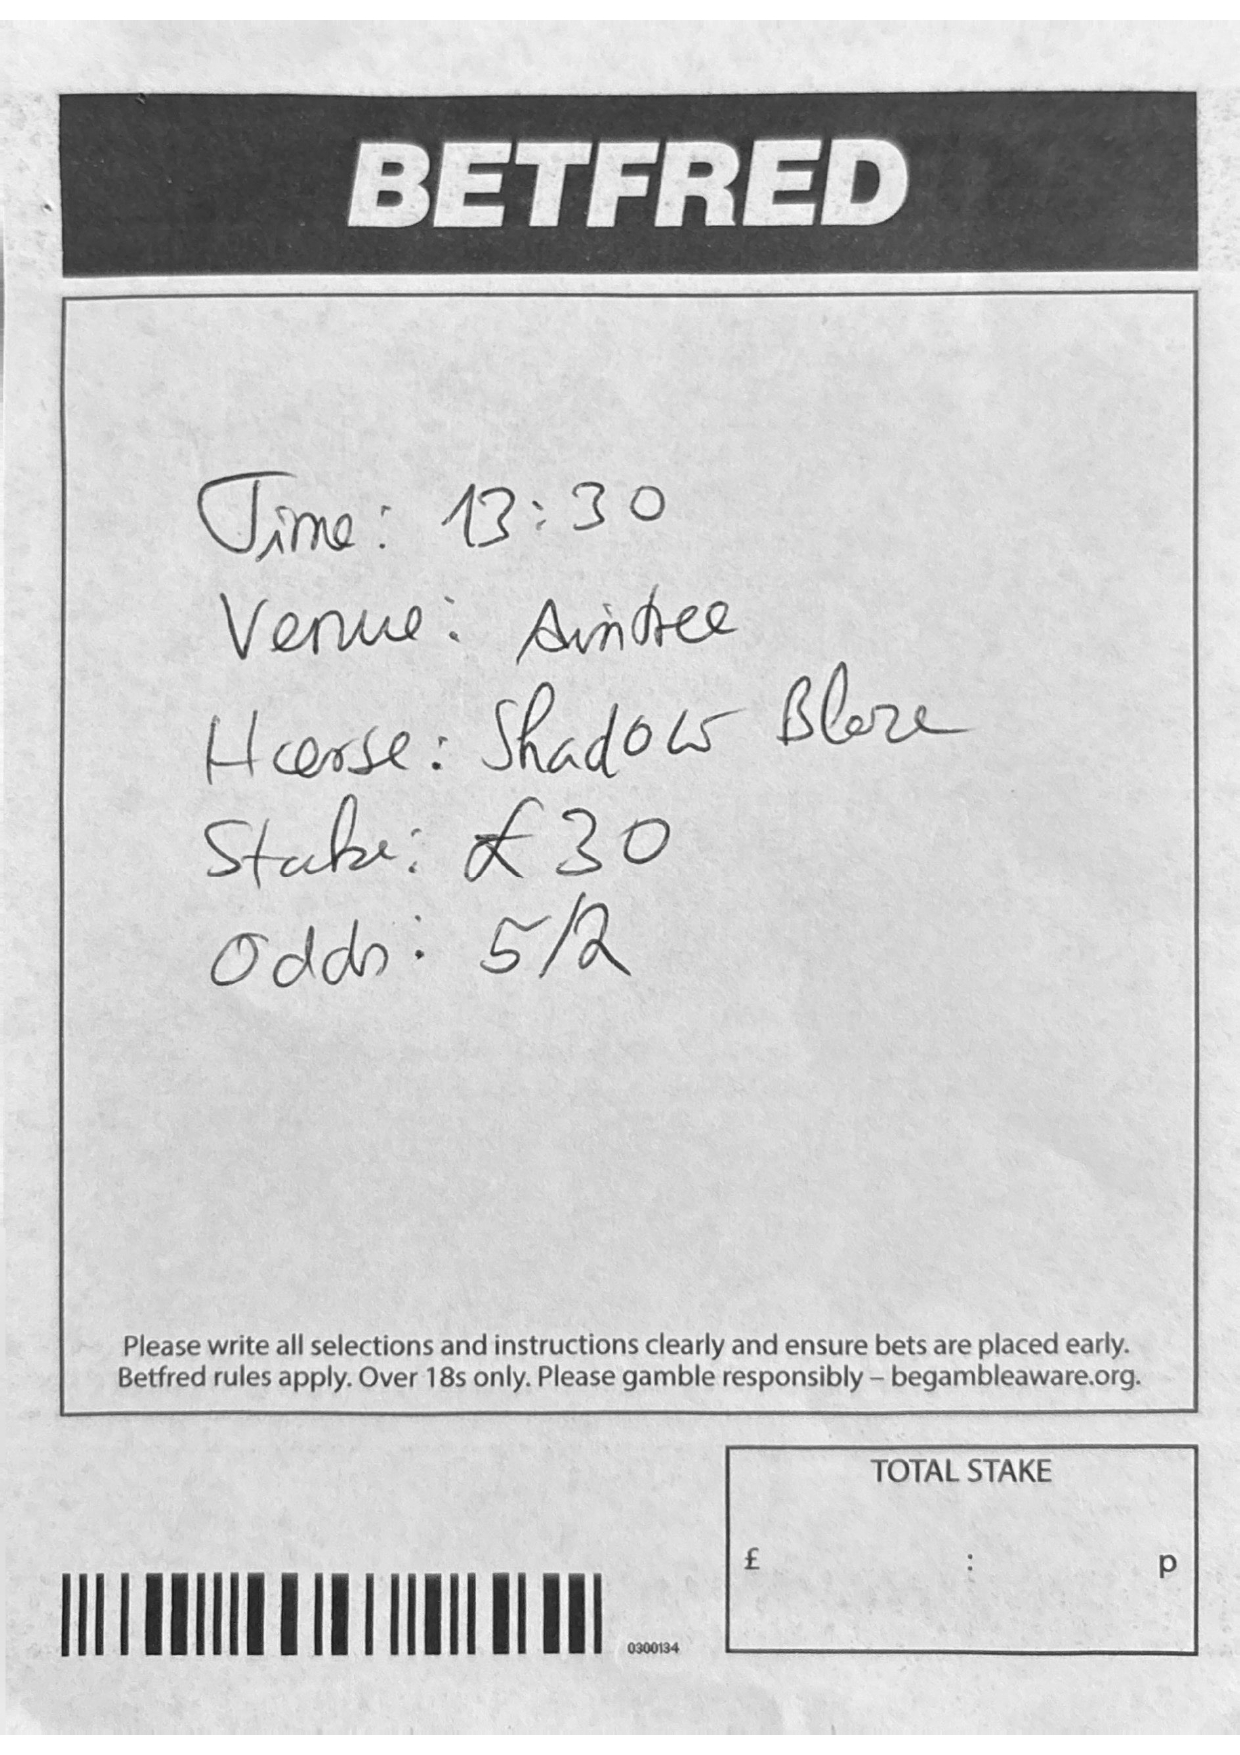 BETFRED
Time: 13:30
Venue: Aintree
Hoorse: Shadow Blaze
Stake: £30
Odds: 5/2
Please write all selections and instructions clearly and ensure bets are placed early.
Betfred rules apply. Over 18s only. Please gamble responsibly – begambleaware.org.
TOTAL STAKE
£ : p
0300134